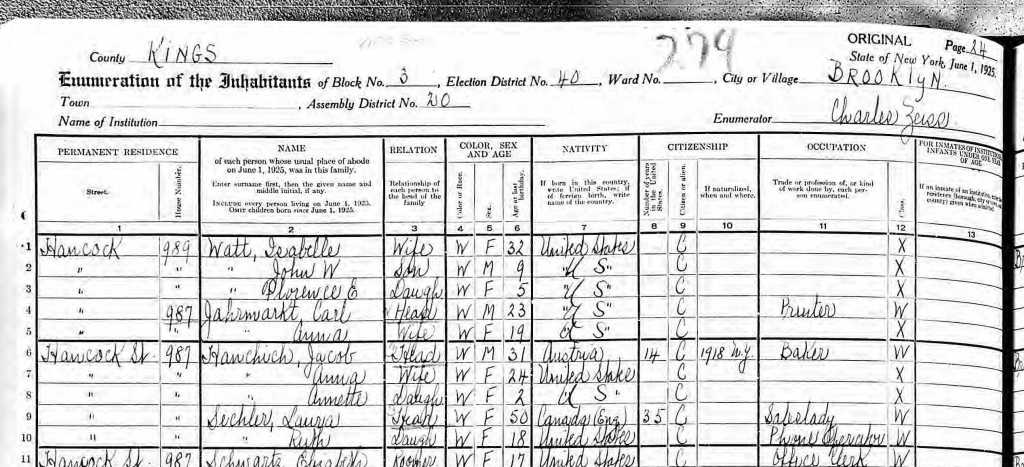 279
ORIGINAL Page 24
County KINGS State of New York, June 1, 1925.
Enumeration of the Inhabitants of Block No. 3, Election District No. 40, Ward No. , City or Village BROOKLYN
Town , Assembly District No. 20
Name of Institution Enumerator Charles Zeiss
PERMANENT RESIDENCE NAME RELATION COLOR, SEX AND AGE NATIVITY CITIZENSHIP OCCUPATION FOR INMATES OF INSTITUTIONS INFANTS UNDER ONE YEAR OF AGE
Street. House Number. of each person whose usual place of abode on June 1, 1925, was in this family. Enter surname first, then the given name and middle initial, if any. INCLUDE every person living on June 1, 1925. OMIT children born since June 1, 1925. Relationship of each person to the head of the family Color or Race. Sex. Age at last birthday. If born in this country, write United States; if of foreign birth, write name of the country. Number of years in the United States. Citizen or alien. If naturalized, when and where. Trade or profession of, or kind of work done by, each person enumerated. Class. If an inmate of an institution,
1 2 3 4 5 6 7 8 9 10 11 12 13
1 Hancock 989 Watt, Isabelle Wife W F 32 United States C X
2 " " " John W Son W M 9 " U S " C X
3 " " " Florence E Daugh W F 5 " U S " C X
4 " 987 Jahrmarkt, Carl Head W M 23 " U S " C Printer W
5 " " " Anna Wife W F 19 U S " C X
6 Hancock St. 987 Hanchich, Jacob Head W M 31 Austria 14 C 1918 N.Y. Baker W
7 " " " Anna Wife W F 24 United State C X
8 " " Annette Daugh W F 2 U S " C X
9 " " Sechler, Laura Head W F 50 Canada (Eng) 35 C Saleslady W
10 " " " Ruth Daugh W F 18 United States C Phone Operator W
11 Hancock St. 987 Schwartz, Elizabeth Roomer W F 17 United States C Office Clerk W